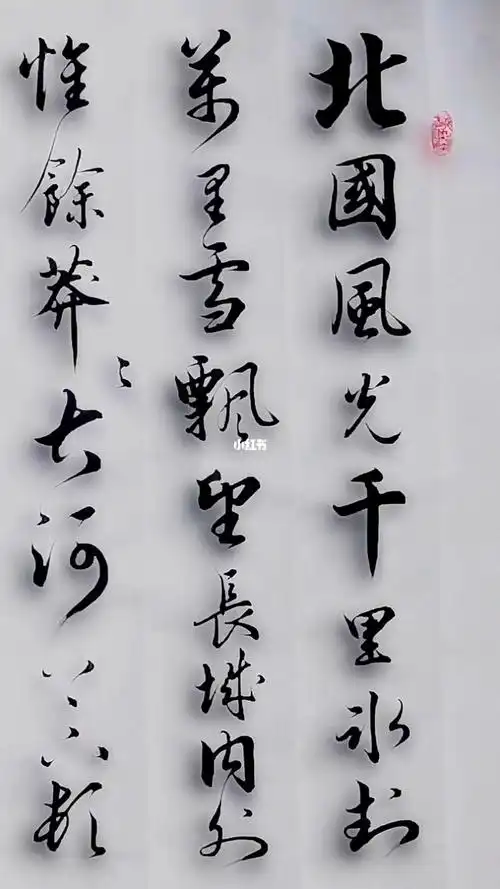 北國風光千里冰封
萬里雪飄望長城內外
惟餘莽〻大河上下頓
小红书